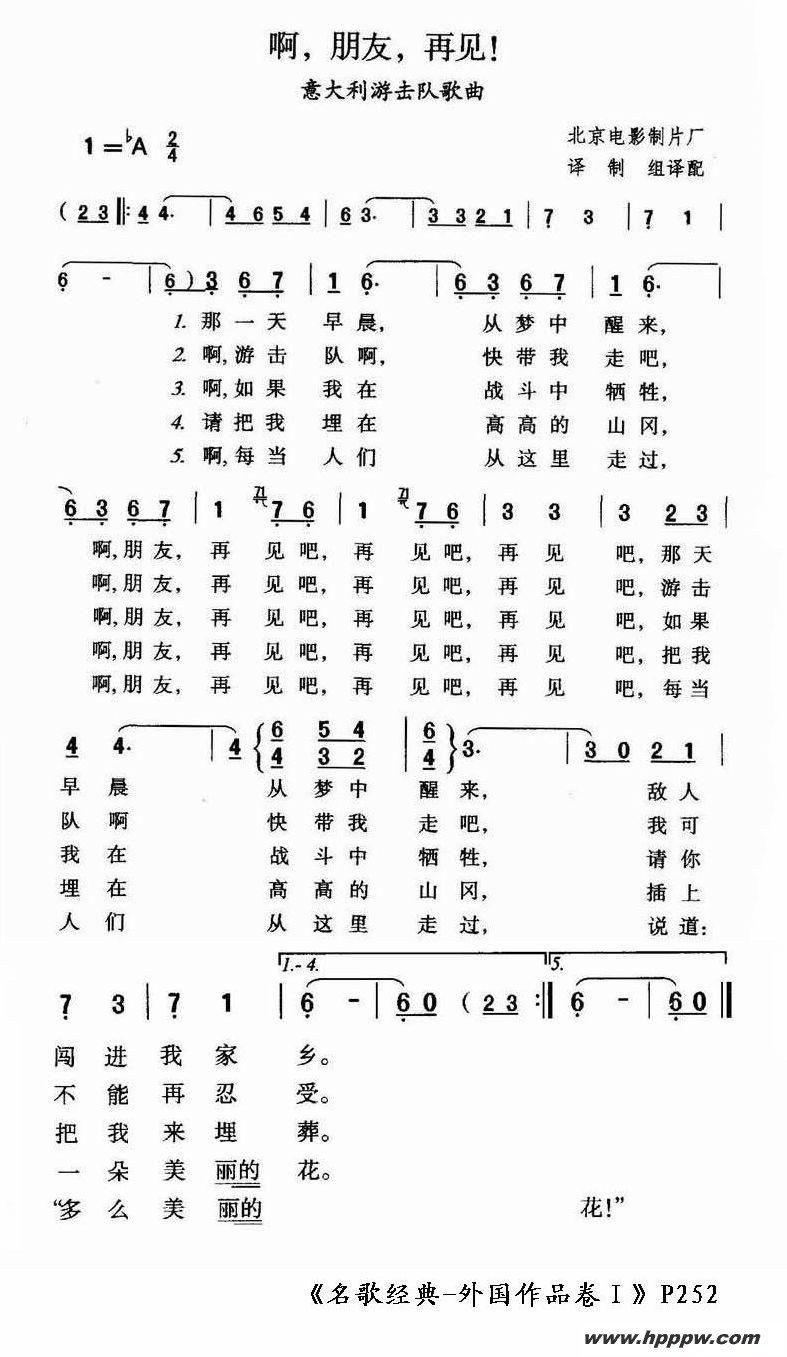 啊，朋友，再见！
意大利游击队歌曲
1=♭A 2/4
北京电影制片厂
译 制 组译配
( 2 3 ‖: 4 4. | 4 6 5 4 | 6 3. | 3 3 2 1 | 7 3 | 7 1 |
6 - | 6 ) 3 6 7 | 1 6. | 6 3 6 7 | 1 6. |
1. 那一天 早晨， 从梦中 醒来，
2. 啊，游击 队啊， 快带我 走吧，
3. 啊，如果 我在 战斗中 牺牲，
4. 请把我 埋在 高高的 山冈，
5. 啊，每当 人们 从这里 走过，
6 3 6 7 | 1 7 6 | 1 7 6 | 3 3 | 3 2 3 |
啊，朋友， 再 见吧，再 见吧，再见 吧，那天
啊，朋友， 再 见吧，再 见吧，再见 吧，游击
啊，朋友， 再 见吧，再 见吧，再见 吧，如果
啊，朋友， 再 见吧，再 见吧，再见 吧，把我
啊，朋友， 再 见吧，再 见吧，再见 吧，每当
6 5 4 6
4 4. | 4 4 3 2 | 4 3. | 3 0 2 1 |
早晨 从梦中 醒来， 敌人
队啊 快带我 走吧， 我可
我在 战斗中 牺牲， 请你
埋在 高高的 山冈， 插上
人们 从这里 走过， 说道：
1.-4. 5.
7 3 | 7 1 | 6 - | 6 0 ( 2 3 :‖ 6 - | 6 0 ‖
闯进我家 乡。
不能再忍 受。
把我来埋 葬。
一朵美丽的 花。
“多么美丽的 花！”
《名歌经典-外国作品卷Ⅰ》P252
www.hpppw.com